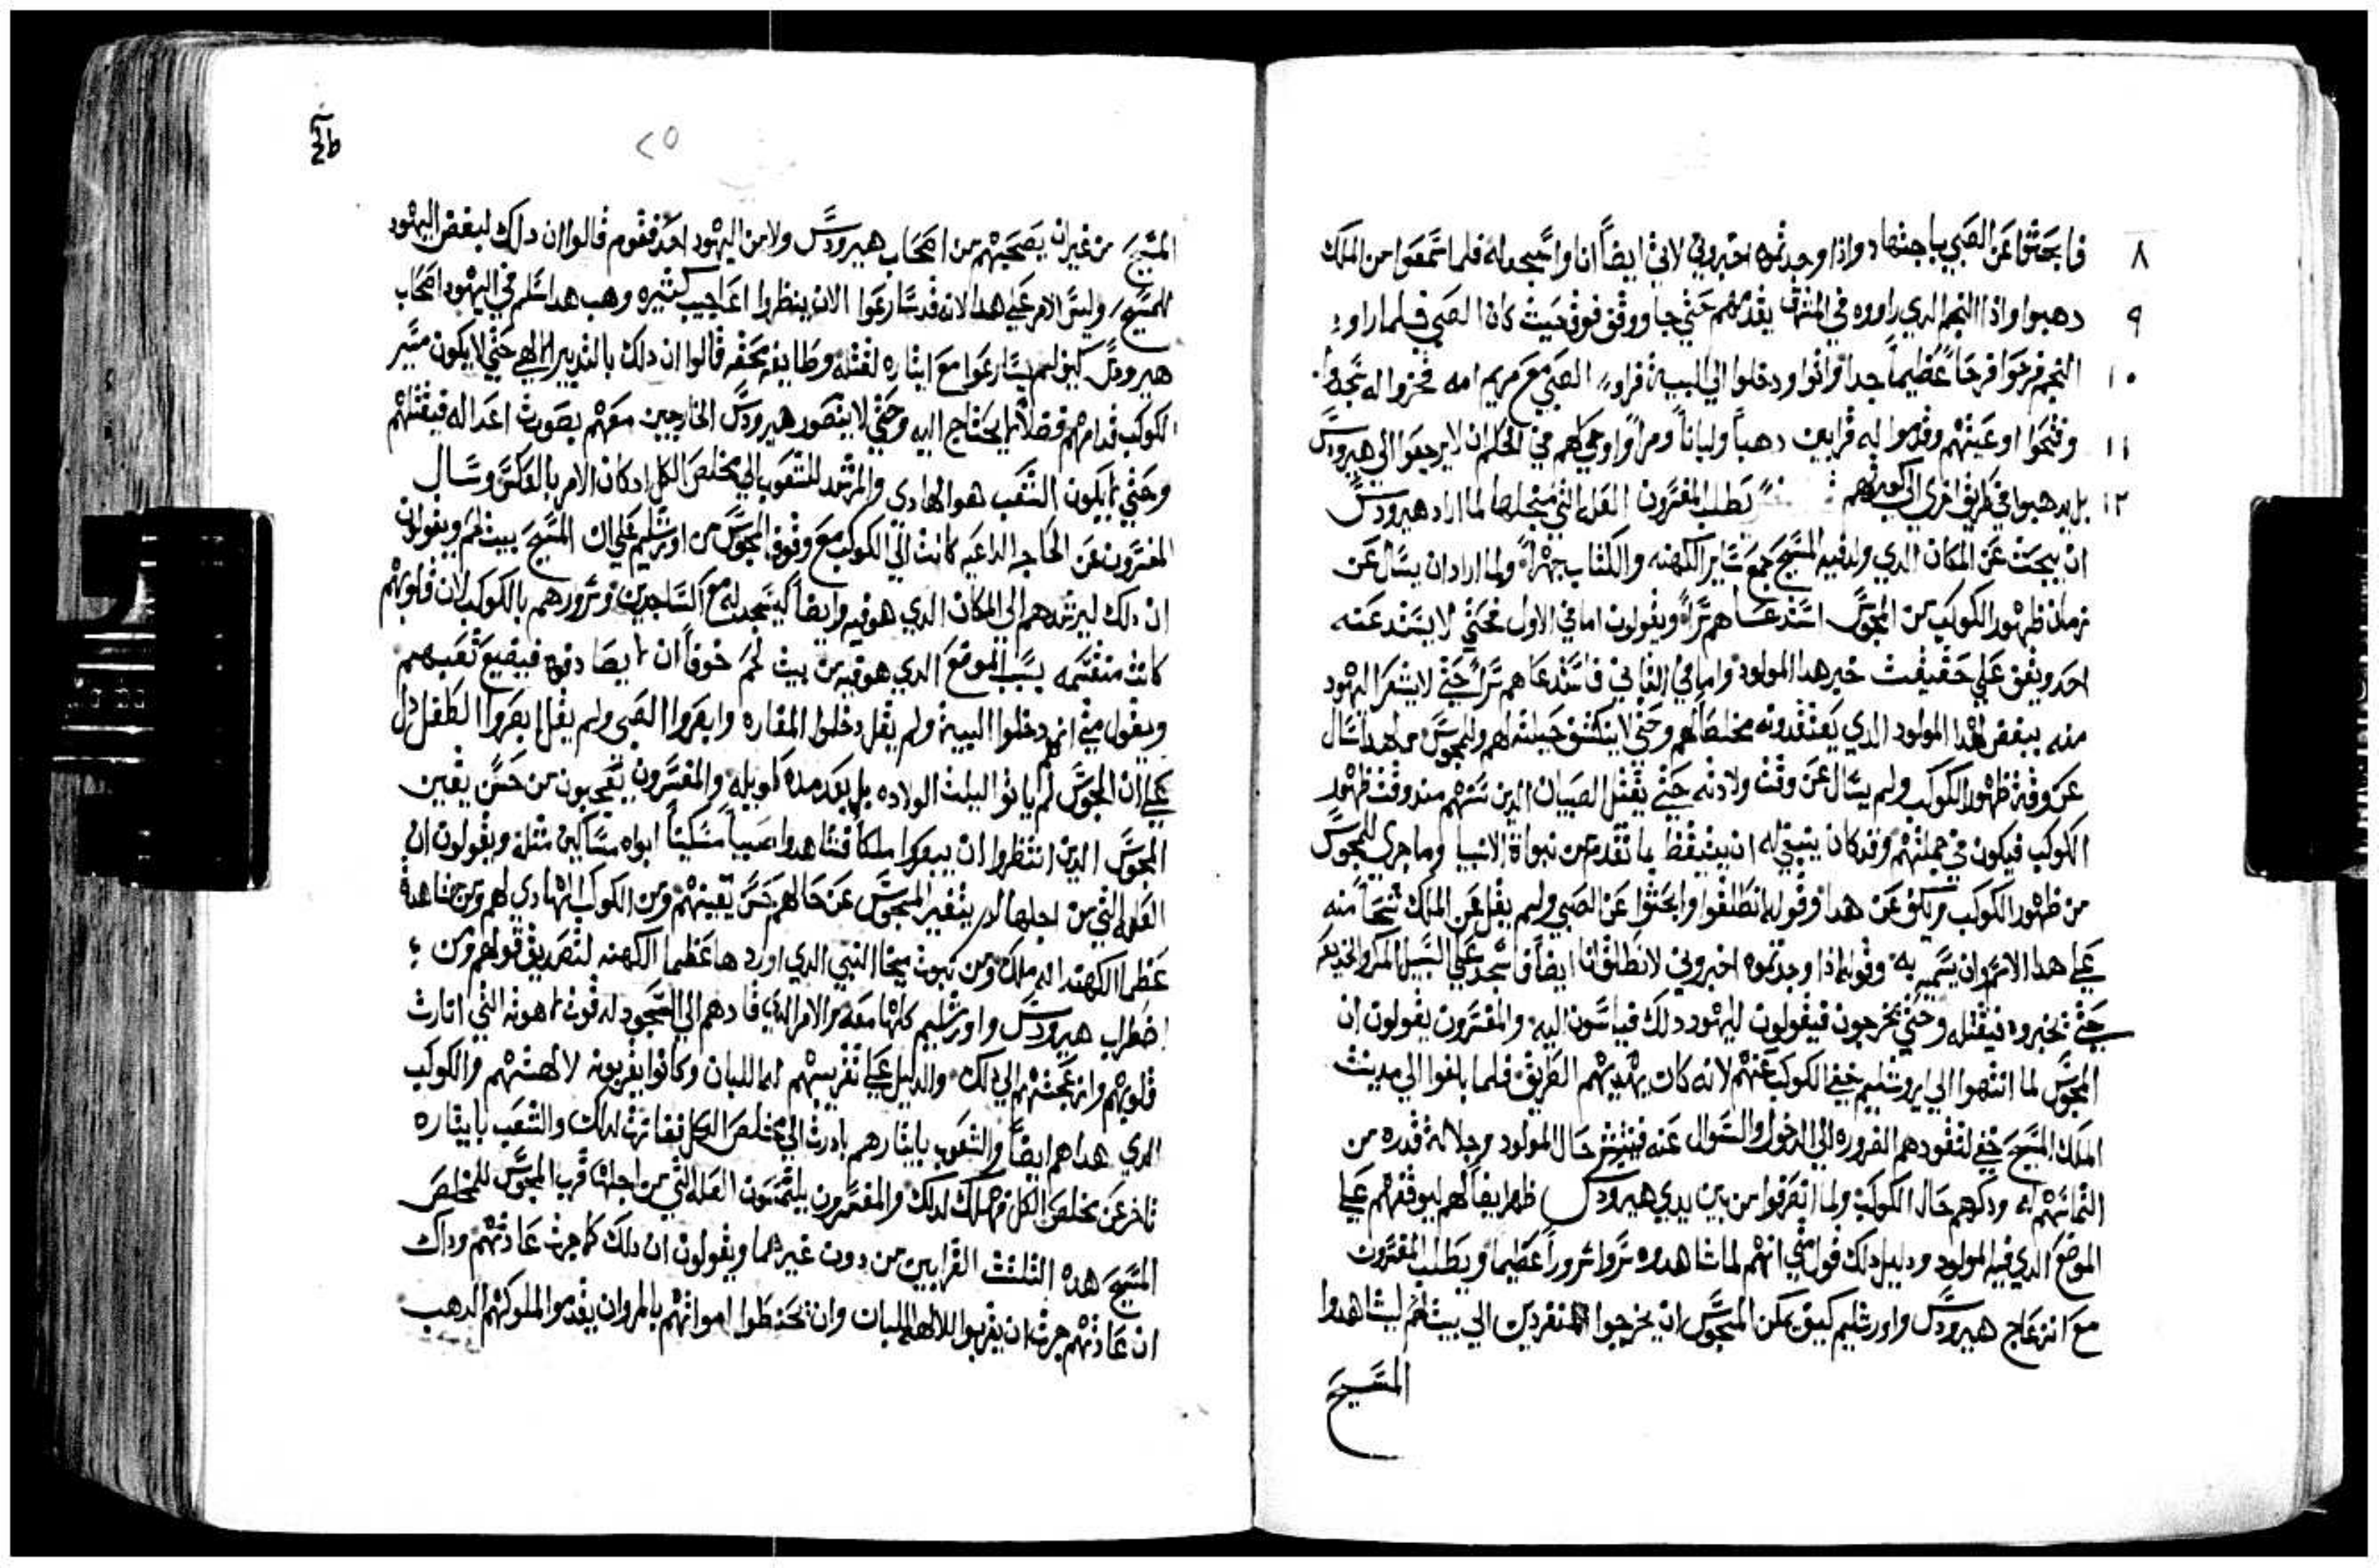 ٨ فابحثوا عن الصبي باجتهاد واذا وجدتموه اخبروني لاتي ايضاً انا واسجد له فلما سمعوا من الملك
٩ دهبوا واذا النجم الدي راوه في المشرق يقدمهم حتي جا ووقف فوق حيث كان الصبي فلما راوا
١٠ النجم فرحوا فرحاً عظيماً جدا واتوا ودخلوا الي البيت فراوا الصبي مع مريم امه فخروا له سجدوا
١١ وفتحوا اوعيتهم وقدموا له قرابين دهباً ولباناً ومراً واوحي لهم في الحلم ان لا يرجعوا الي هيرودس
١٢ بل يدهبوا في طريق اخري الي كورتهم يطلب المفسرون العله التي من اجلها لما اراد هيرودس
ان يبحث عن المكان الدي ولد فيه المسيح جمع ساير الكهنه والكتاب جهراً ولما اراد ان يسال عن
زمان ظهور الكوكب من المجوس استدعاهم سراً ويقولون اما في الاول فحتي لا يستد عنه
احد ويقف علي حقيقت خبر هدا المولود واما في الثاني فاستدعاهم سراً حتي لا يشعر اليهود
منه ببغض لهدا المولود الدي يعتقدونه مخلصاً لهم وحتي لا ينكشف حيلته لهم وللمجوس من هدا سال
عن وقت ظهور الكوكب ولم يسال عن وقت ولادته حتي يقتل الصبيان الدين سنهم مند وقت ظهور
الكوكب فيكون في جملتهم وقد كان ينبغي له ان يستيقظ بما تقدم من نبواة الانبيا وما جري للمجوس
من ظهور الكوكب ويكف عن هدا وقوله انطلقوا وابحثوا عن الصبي ولم يقل عن الملك شحاً منه
علي هدا الاسم وان يسميه به وقوله ادا وجدتموه اخبروني لانطلق انا ايضاً فاسجد علي السبيل المكر والخديعه
حتي تخبروه فيقتله وحتي تخرجون فيقولون لليهود دلك فياسون اليه والمفسرون يقولون ان
المجوس لما انتهوا الي ايروشليم خفي الكوكب عنهم لانه كان يهديهم الطريق فلما بلغوا الي مدينت
الملك المسيح خفي لتقودهم الضروره الي الدخول والسوال عنه فينتشر حال المولود وجلالة قدره من
التماسهم له ودكرهم حال الكوكب ولما انصرفوا من بين يدي هيرودس ظهر ايضاً لهم ليوقفهم علي
الموضع الدي فيه المولود ودليل دلك قول متي انهم لما شاهدوه سروا سروراً عظيما ويطلب المفسرون
مع انزعاج هيرودس واورشليم كيف يمكن المجوس ان يخرجوا منفردين الي بيت لحم ليشاهدوا
المسيح
٢٥
المسيح من غير ان يصحبهم من اصحاب هيرودس ولا من اليهود احد فقوم قالوا ان دلك لبغض اليهود
للمسيح وليس الامر علي هدا لانه قد سارعوا الان ينظروا اعاجيب كثيره وهب هدا سلم في اليهود اصحاب
هيرودس كيف لم يسارعوا مع ايثاره لقتله وطايفه بحقه قالوا ان دلك بالتدبير الالهي حتي لا يكون مسير
الكوكب قدامهم فضلاً لا يحتاج اليه وحتي لا يتصور هيرودس الخارجين معهم بصورت اعدا له فيقتلهم
وحتي لا يكون الشعب هو الهادي والمرشد للشعوب الي مخلص الكل اد كان الامر بالعكس وسال
المفسرون عن الحاجه الداعيه كانت الي الكوكب مع وقوف المجوس من اورشليم علي ان المسيح ببيت لحم ويقولون
ان دلك ليرشدهم الي المكان الدي هو فيه وايضاً ليسجد له مع الساجدين وسرورهم بالكوكب لان قلوبهم
كانت منقسمه بسبب الموضع الدي هو فيه من بيت لحم خوفاً ان لا يصادفوه فيضيع تعبهم
ويقول متي انهم دخلوا البيت ولم يقل دخلوا المغاره وابصروا الصبي ولم يقل ابصروا الطفل دل
علي ان المجوس لم ياتوا ليلت الولاده بل بعد مده طويله والمفسرون يتعجبون من حسن يقين
المجوس الدين انتظروا ان يبصروا ملكاً فشاهدوا صبياً مسكيناً ابواه مساكين مثله ويقولون ان
العله التي من اجلها لم يتغير المجوس عن حالهم حسن يقينهم ومن الكوكب الهادي لهم ومن شاهدة
عظما الكهنه انه ملك ومن نبوت ميخا النبي الدي اوردها عظما الكهنه لتصديق قولهم ومن
اضطراب هيرودس واورشليم كلها معه والامر الدي قادهم الي السجود له قوت لاهوته التي انارت
قلوبهم وازعجتهم الي دلك والدليل علي تقريبهم له اللبان وكانوا يقربونه لالهتهم والكوكب
الدي هداهم ايضاً والشعوب بايثارهم بادرت الي مخلص الكل فقاترت لدلك والشعب بايثاره
تاخر عن مخلص الكل فهلك لدلك والمفسرون يلتمسون العله التي من اجلها قرب المجوس للمخلص
المسيح هده الثلثت القرابين من دون غيرهما ويقولون ان دلك كما جرت عادتهم وداك
ان عادتهم جرت ان يقربوا للالهه اللبان وان تحنطوا امواتهم بالمر وان يقدموا لملوكهم الدهب